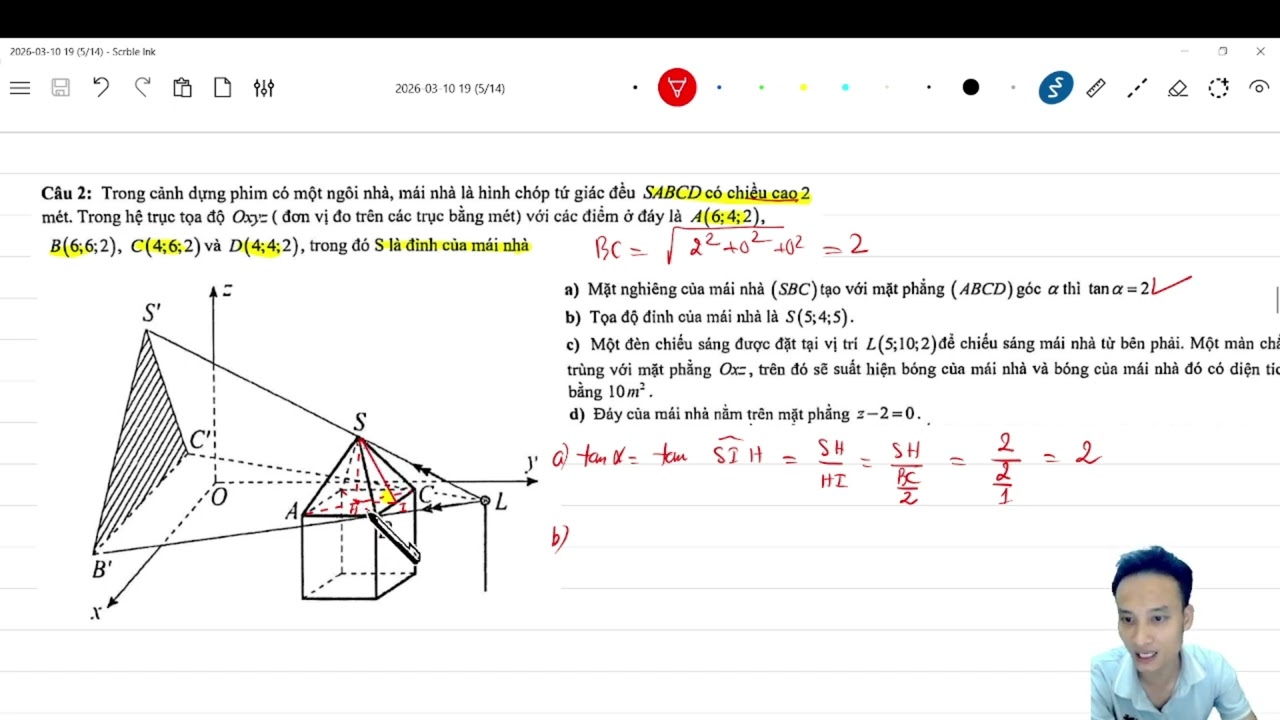 2026-03-10 19 (5/14) - Scrble Ink
2026-03-10 19 (5/14)
Câu 2: Trong cảnh dựng phim có một ngôi nhà, mái nhà là hình chóp tứ giác đều SABCD có chiều cao 2
mét. Trong hệ trục tọa độ Oxyz ( đơn vị đo trên các trục bằng mét) với các điểm ở đáy là A(6;4;2),
B(6;6;2), C(4;6;2) và D(4;4;2), trong đó S là đỉnh của mái nhà
BC = √(2² + 0² + 0²) = 2
a) Mặt nghiêng của mái nhà (SBC) tạo với mặt phẳng (ABCD) góc α thì tan α = 2
b) Tọa độ đỉnh của mái nhà là S(5;4;5).
c) Một đèn chiếu sáng được đặt tại vị trí L(5;10;2) để chiếu sáng mái nhà từ bên phải. Một màn
trùng với mặt phẳng Oxz, trên đó sẽ suất hiện bóng của mái nhà và bóng của mái nhà đó có diện
bằng 10m².
d) Đáy của mái nhà nằm trên mặt phẳng z−2=0.
a) tan α = tan SIH = SH/HI = SH/(BC/2) = 2/(2/1) = 2
b)
S'
z
C'
O
S
y
A
H
I
C
L
B'
x